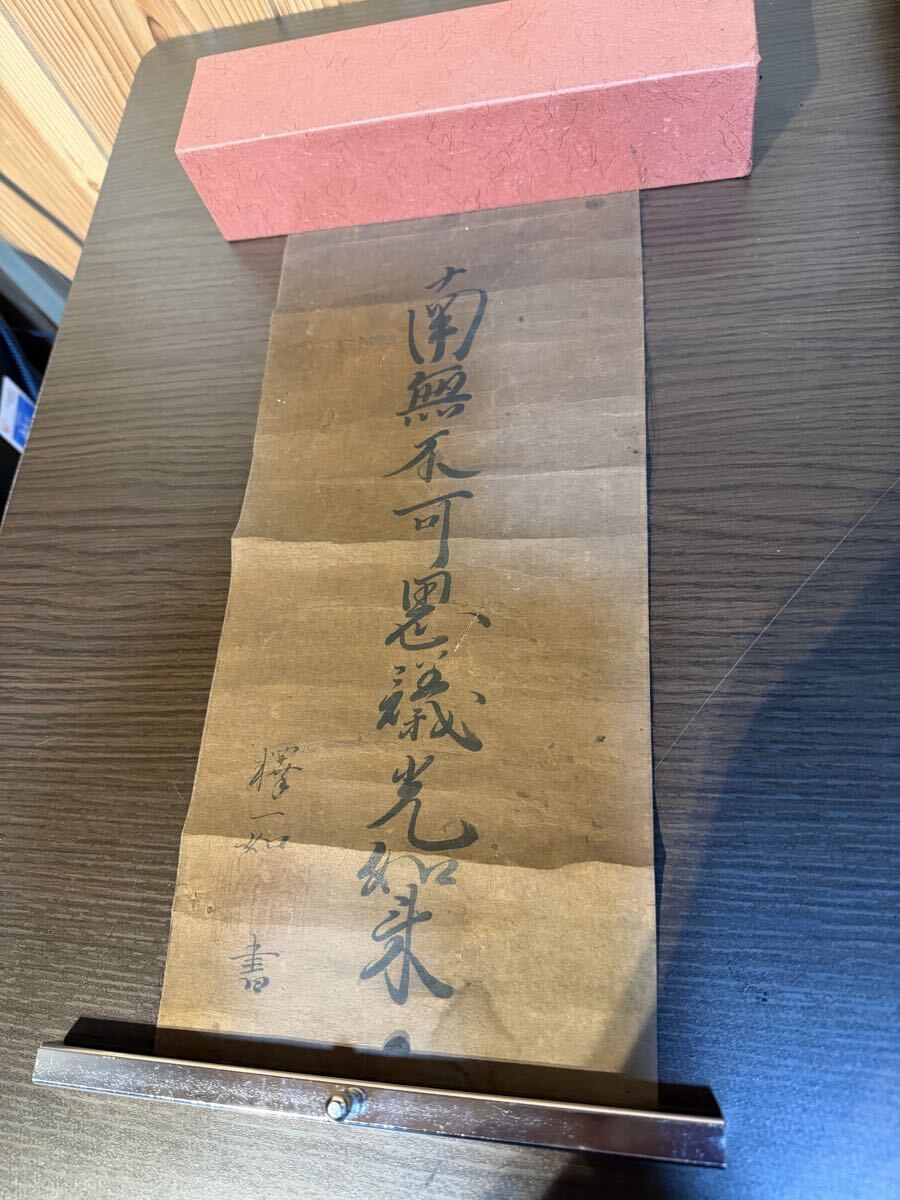 南無不可思議光如来
釋一如
書